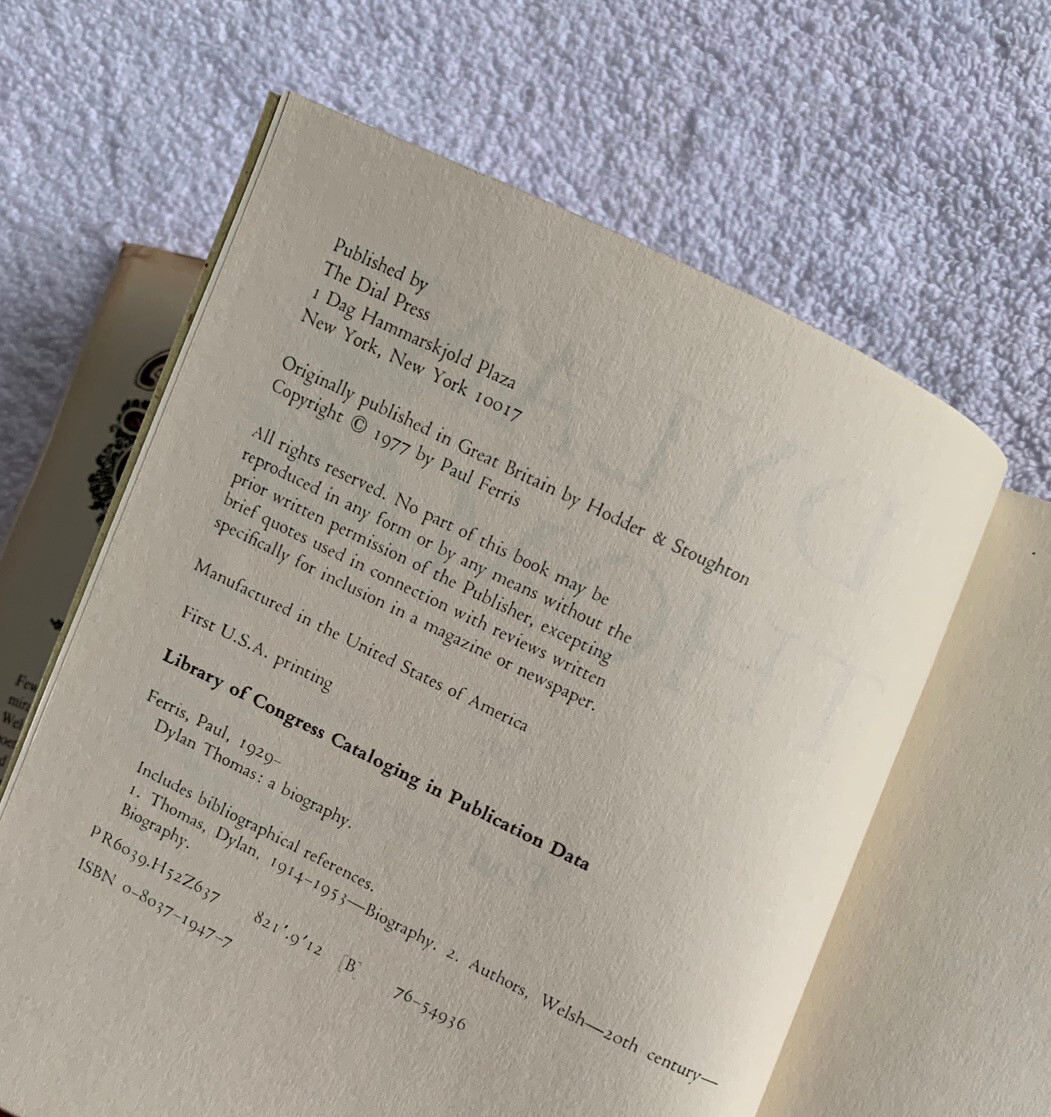 Published by
The Dial Press
1 Dag Hammarskjold Plaza
New York, New York 10017
Originally published in Great Britain by Hodder & Stoughton
Copyright © 1977 by Paul Ferris
All rights reserved. No part of this book may be
reproduced in any form or by any means without the
prior written permission of the Publisher, excepting
brief quotes used in connection with reviews written
specifically for inclusion in a magazine or newspaper.
Manufactured in the United States of America
First U.S.A. printing
Library of Congress Cataloging in Publication Data
Ferris, Paul, 1929–
Dylan Thomas: a biography.
Includes bibliographical references.
1. Thomas, Dylan, 1914–1953—Biography. 2. Authors, Welsh—20th century—
Biography.
PR6039.H52Z637 821'.9'12 [B] 76–54936
ISBN 0–8037–1947–7
Few